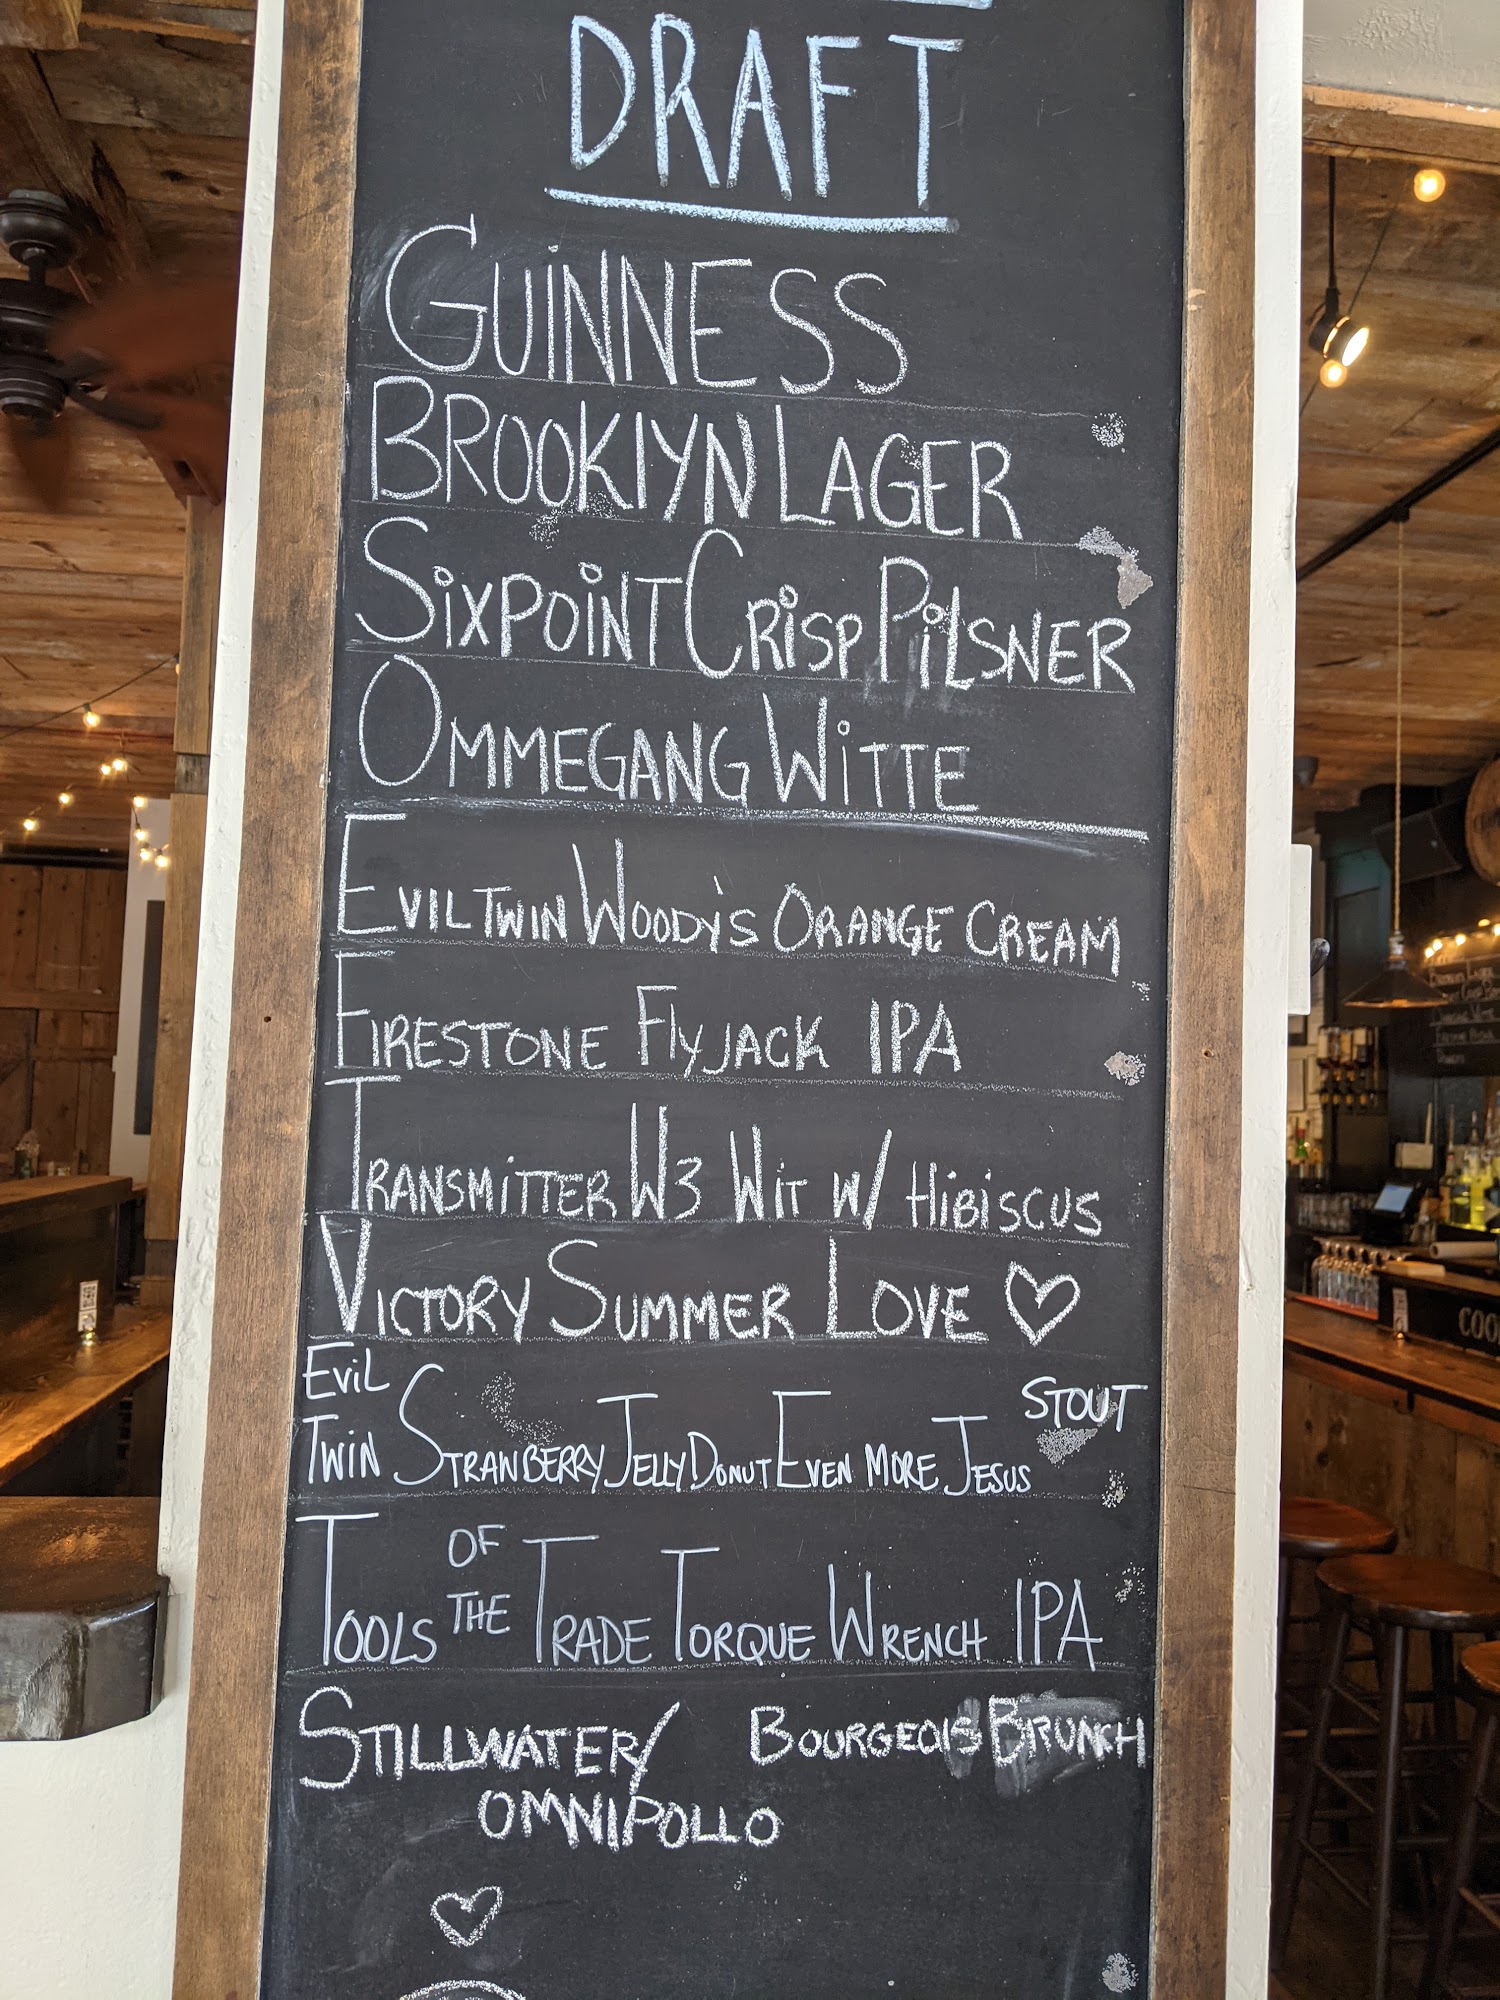 DRAFT
GUINNESS
BROOKLYN LAGER
SIXPOINT CRISP PILSNER
OMMEGANG WITTE
EVIL TWIN WOODY'S ORANGE CREAM
FIRESTONE FLYJACK IPA
TRANSMITTER W3 WIT W/ HIBISCUS
VICTORY SUMMER LOVE
EVIL TWIN STRAWBERRY JELLY DONUT EVEN MORE JESUS STOUT
TOOLS OF THE TRADE TORQUE WRENCH IPA
STILLWATER/ BOURGEOIS BRUNCH
OMNIPOLLO
COO